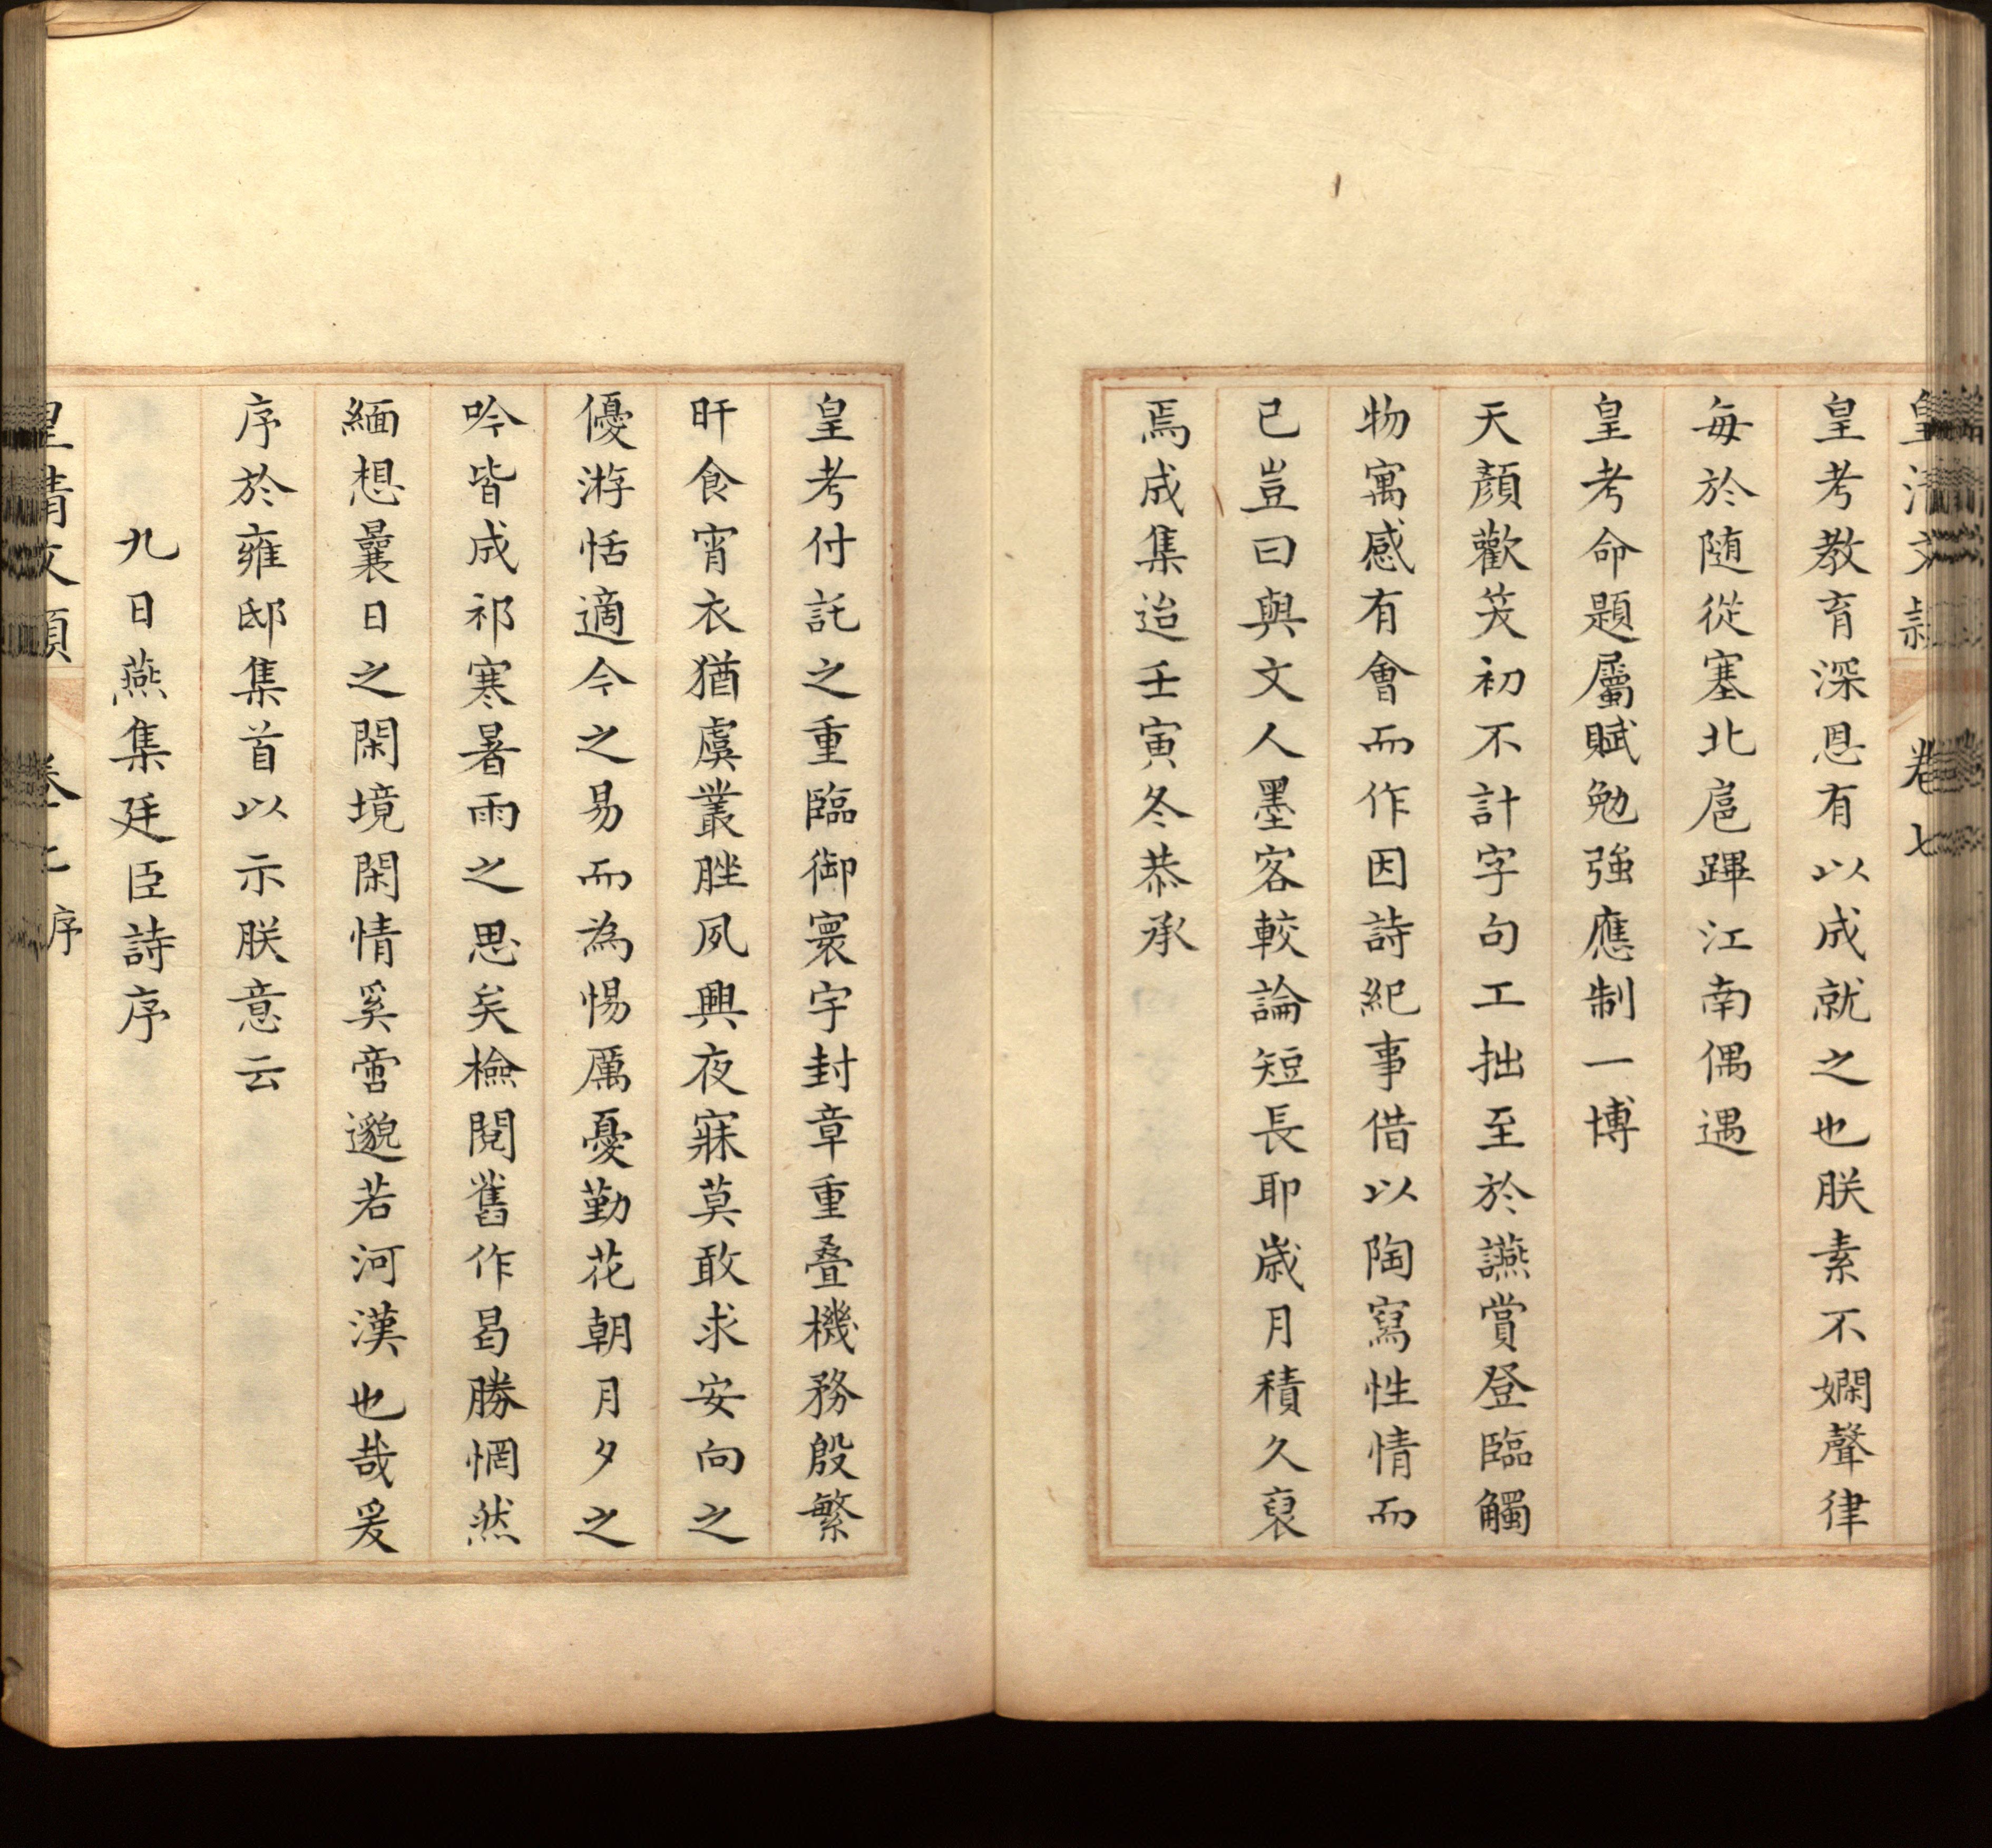 皇清文穎 卷七
皇考教育深恩有以成就之也朕素不嫻聲律
每於随從塞北扈蹕江南偶遇
皇考命題屬賦勉強應制一博
天顏歡笑初不計字句工拙至於讌賞登臨觸
物寓感有會而作因詩紀事借以陶寫性情而
已豈曰與文人墨客較論短長耶歲月積久裒
焉成集迨壬寅冬恭承
皇考付託之重臨御寰宇封章重疊機務殷繁
旰食宵衣猶虞叢脞夙興夜寐莫敢求安向之
優游恬適今之易而為惕厲憂勤花朝月夕之
吟皆成祁寒暑雨之思矣檢閱舊作曷勝惘然
緬想曩日之閑境閑情奚啻邈若河漢也哉爰
序於雍邸集首以示朕意云
九日燕集廷臣詩序
皇清文穎 卷七 序